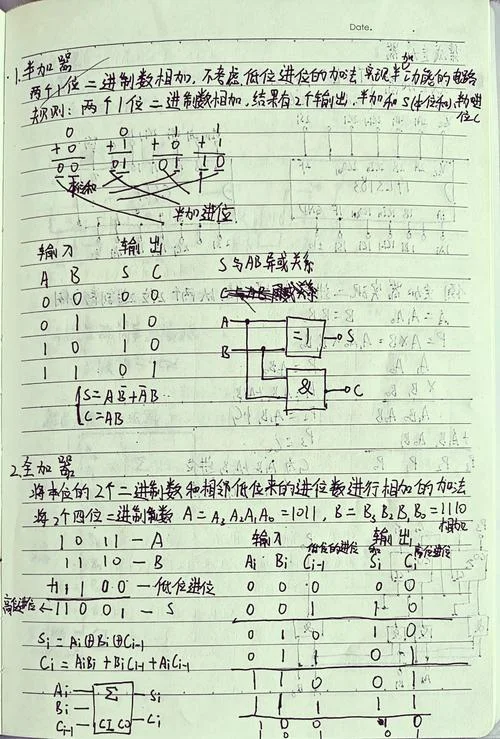 Date.
1.半加器
两个1位二进制数相加,不考虑低位进位的加法 实现半加功能的电路
规则:两个1位二进制数相加,结果有2个输出,半加和S(本位和),半加进位C
0 0 1 1
+0 +1 +0 +1
00 01 01 10
本位和
半加进位
输入 输出
A B S C
0 0 0 0
0 1 1 0
1 0 1 0
1 1 0 1
S=AB̄+ĀB
C=AB
S与AB异或关系
A
B
=1
S
&
C
2.全加器
将本位的2个二进制数和相邻低位来的进位数进行相加的加法
将2个四位二进制数 A=A₃A₂A₁A₀=1011, B=B₃B₂B₁B₀=1110
相加
1011—A
1110—B
+11100—低位进位
高位进位←11001—S
Si=Ai⊕Bi⊕Ci-1
Ci=AiBi+BiCi-1+AiCi-1
Ai
Bi
Ci-1
Σ
CI CO
Si
Ci
输入 输出
低位的进位 和 高位进位
Ai Bi Ci-1 Si Ci
0 0 0 0 0
0 0 1 1 0
0 1 0 1 0
0 1 1 0 1
1 1 0 0 1
1 1 1 1 1
1 0 0 1 0
1 0 1 0 1